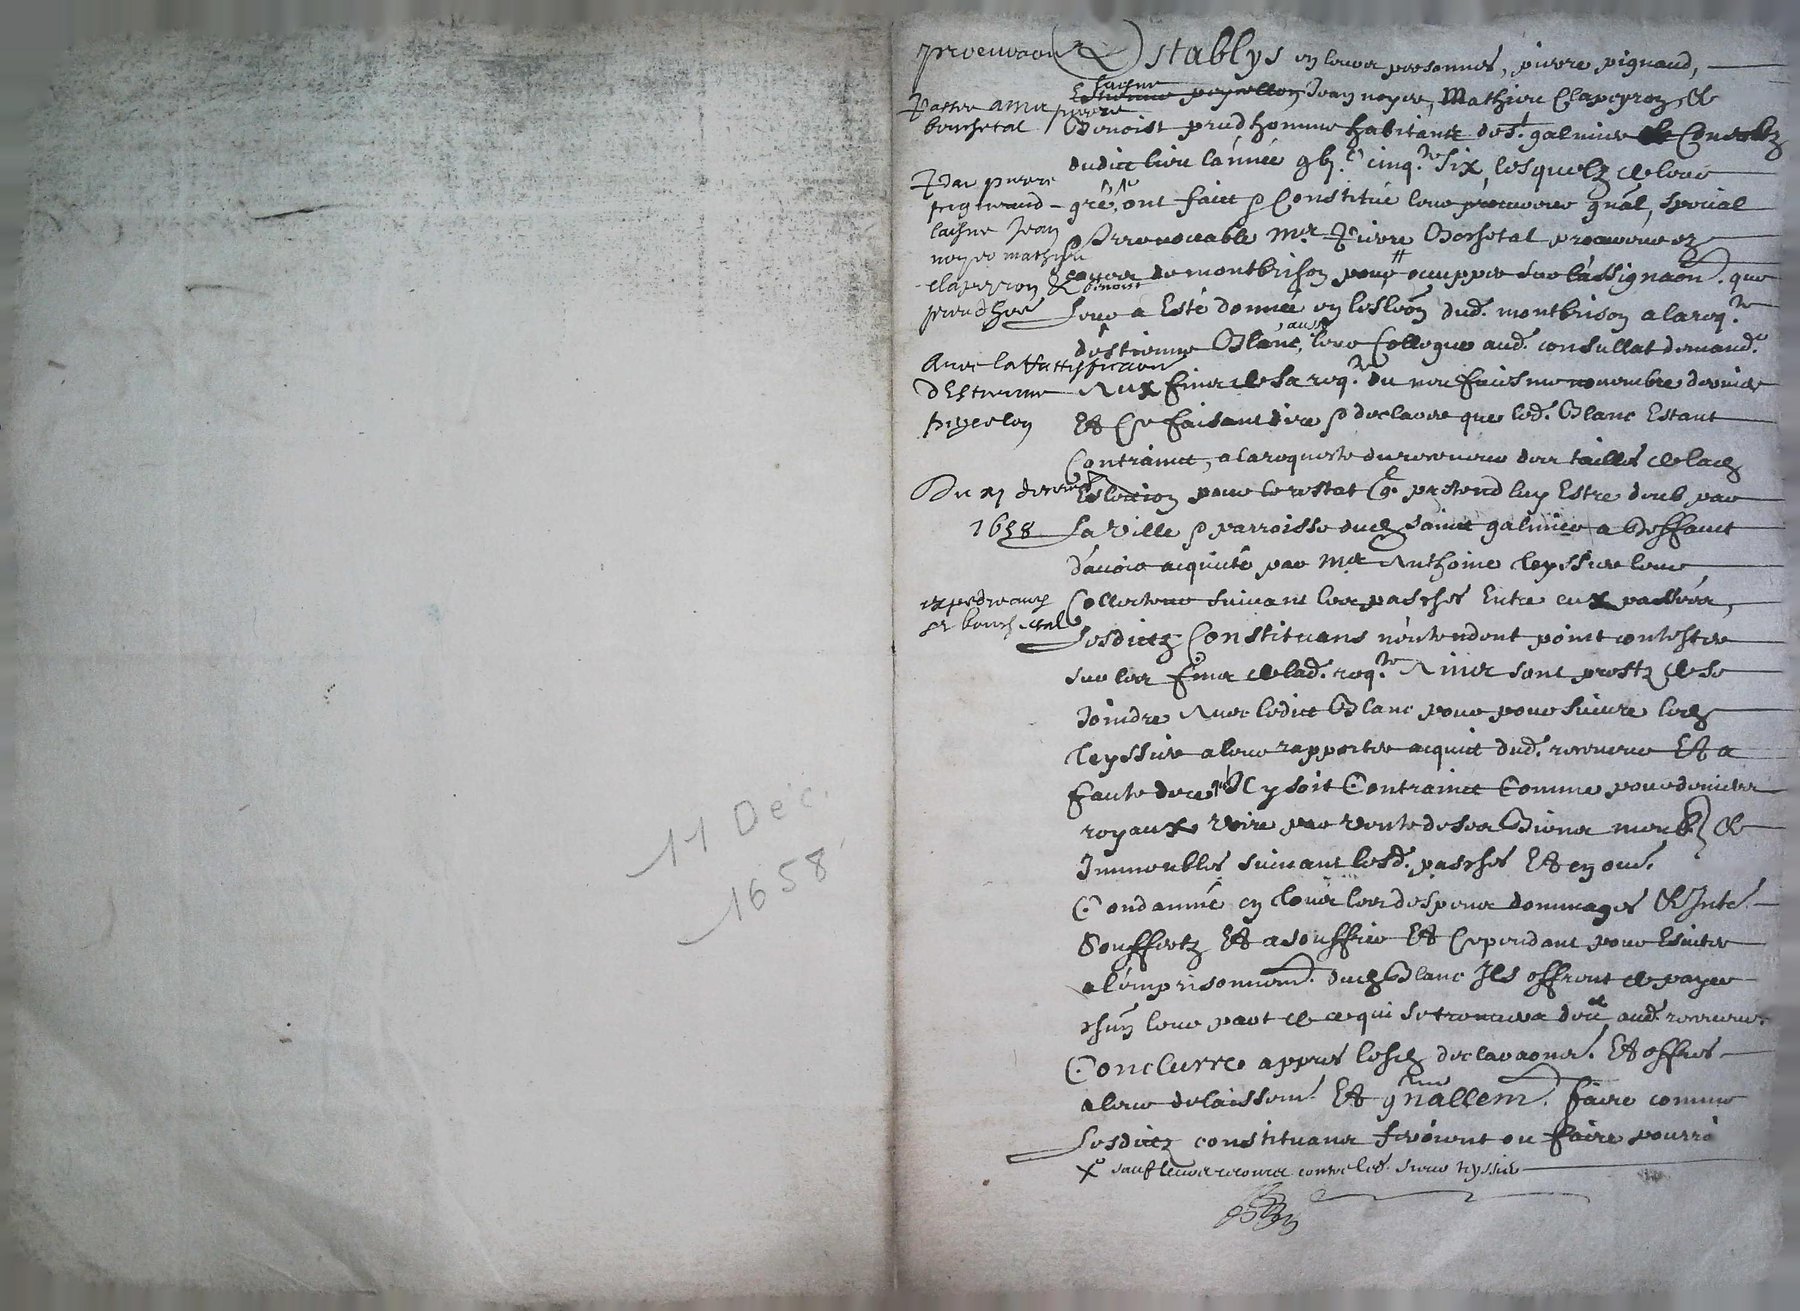 11 Déc.
1658
procuraon
passée a me
bouchetal
par pierre
pigniaud
laisne Jean
noyer mathieu
clapeyron & benoist
preudhoe
Avec la
d'Estienne
peyrelon
Du xj decemb
1658
expedie aud
sr bouchetal
Establys en leurs personnes, pierre pignaud,
laisne Jean noyer, Mathieu Clapeyron &
Benoist preudhomme habitantz de St galmier Consulz
dudict lieu l'année cinq. six, lesquelz de leur
gré, ont faict & Constitué leur procureur gnal, special
& Irrevocable Mre Pierre Boschetal procureur ez
cours de montbrison pour occupper sur l'assignaon. que
leur a Esté donnée en leslëon dud. montbrison a la req.te
d'estienne Blanc, leur Collegue aud. consullat demand.r
Aux fins de sa req.te du novembre dernier
Et Ce faisant dire & declarer que led. Blanc Estant
Contrainct, a la requeste du receveur des tailles de lad
Eslection pour le restat q. pretend luy Estre deub par
La Ville & parroisse dud sainct galmier a deffaut
d'avoir acquitté par Mre Anthoine teyssier leur
Collecteur suivant les pasches Entre eux passées,
Lesdictz Constituans n'entendent point contester
sur les fins de lad. req.te Ains sont prestz de se
Joindre Avec ledict Blanc pour poursuivre led
teyssier a leur rapporter acquict dud. receveur Et a
faute de ce Il y soit Contrainct Comme pour deniers
royaux voire par vente de ses Biens meub. &
Immeubles suivant lesd. pasches Et en oue.
Condamné en tous les despens dommages & Inté.
Soufferts Et a souffrir Et Cependant pour Esviter
a l'emprisonnem. dud Blanc Ils offrent de payer
chun leur part de ce qui se trouvera deu aud. receveur.
Conclurre appres lesd declaraons. Et offres
a leur delaissem. Et gnallem. faire comme
Lesdictz constituans feroient ou faire pourroi
X sauf leurs recours contre led. sieur teyssier